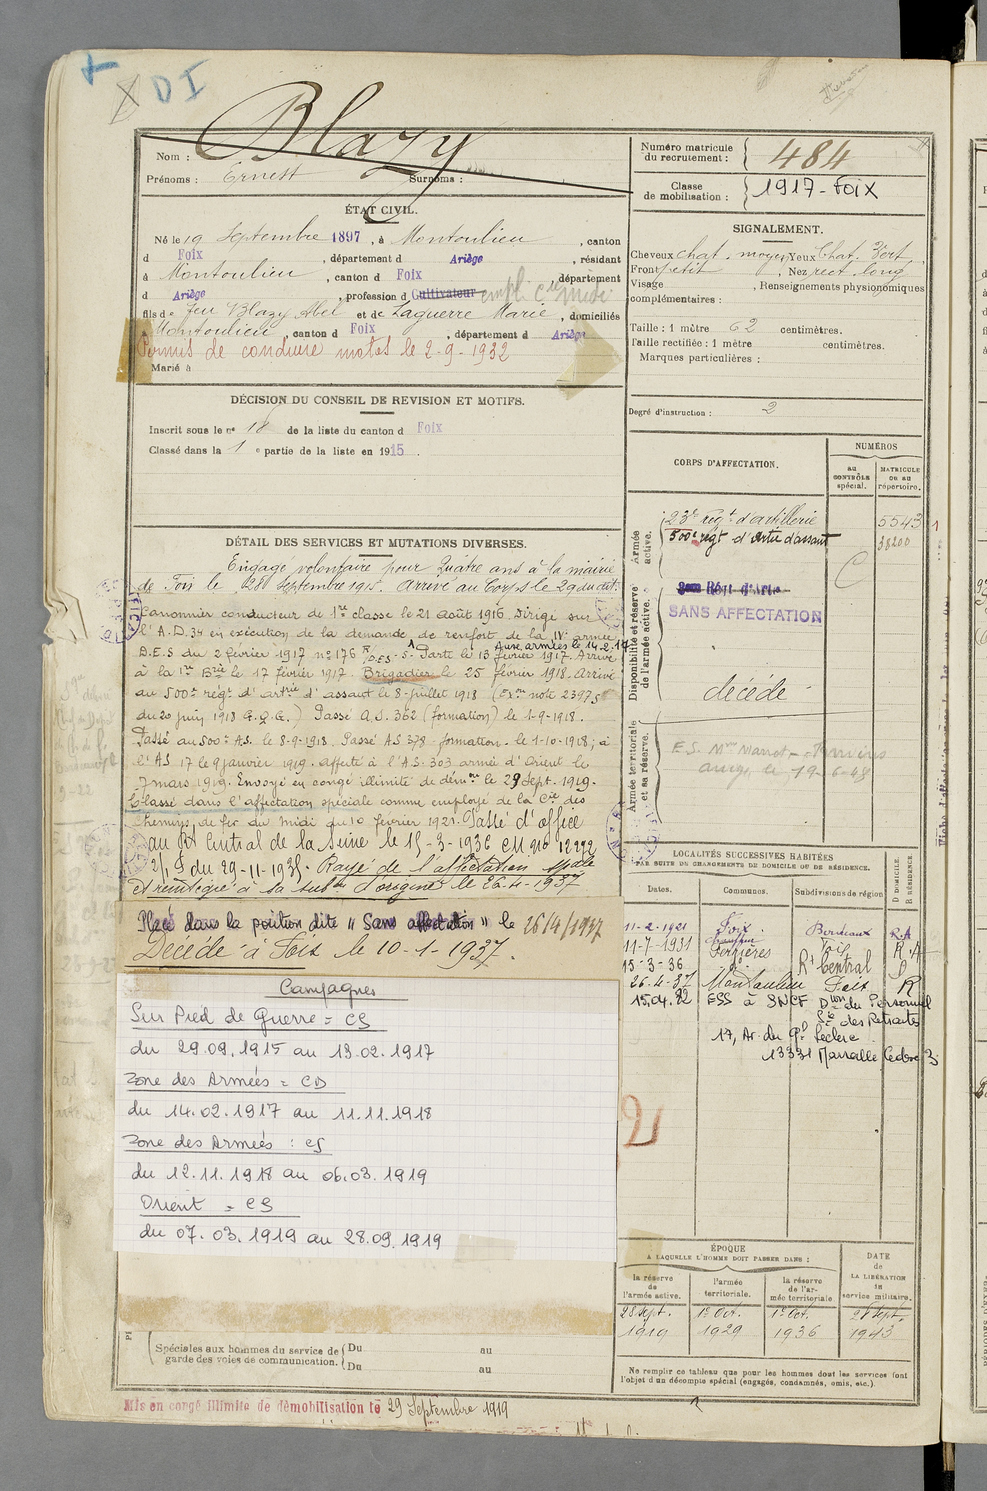 DI
Nom : Blazy
Prénoms : Ernest Surnoms :
Numéro matricule du recrutement : 484
Classe de mobilisation : 1917 - Foix
ÉTAT CIVIL.
Né le 19 Septembre 1897, à Montoulieu, canton
d Foix, département d Ariège, résidant
à Montoulieu, canton d Foix, département
d Ariège, profession d Cultivateur empl. Cie Midi
fils de feu Blazy Abel et de Laguerre Marie, domiciliés
à Montoulieu, canton d Foix, département d Ariège
Permis de conduire motos le 2-9-1932
Marié à
SIGNALEMENT.
Cheveux chat. moyen Yeux Chat. Vert
Front petit, Nez rect. long
Visage , Renseignements physionomiques
complémentaires :
Taille : 1 mètre 62 centimètres.
Taille rectifiée : 1 mètre centimètres.
Marques particulières :
Degré d'instruction : 2
DÉCISION DU CONSEIL DE REVISION ET MOTIFS.
Inscrit sous le n° 18 de la liste du canton d Foix
Classé dans la 1 e partie de la liste en 1915.
DÉTAIL DES SERVICES ET MUTATIONS DIVERSES.
Engagé volontaire pour Quatre ans à la mairie
de Foix le 28 Septembre 1915. Arrivé au Corps le 29 dudit.
Canonnier conducteur de 1re classe le 21 août 1916. Dirigé sur
l'A.D. 34 en exécution de la demande de renfort de la IVe armée
D.E.S du 2 février 1917 n° 176 Aux armées le 14.2.17
Parte le 13 février 1917. Arrivé
à la 1re Brie le 17 février 1917. Brigadier le 25 février 1918. Arrivé
au 500e régt d'artrie d'assaut le 8 Juillet 1918 (note 23975
du 20 juin 1918 G.Q.G.) Passé A.S. 362 (formation) le 1-9-1918.
Passé au 500e A.S. le 8-9-1918. Passé AS 378 formation. le 1-10-1918; à
l'AS 17 le 9 janvier 1919. affecté à l'A.S. 303 armée d'Orient le
7 mars 1919. Envoyé en congé illimité de démon le 29 Sept. 1919.
Classé dans l'affectation spéciale comme employé de la Cie des
Chemins de fer du Midi du 10 février 1921. Passé d'office
au Rt Central de la Seine le 15-3-1936 CM n° 12292
2/1 S du 29-11-1935. Rayé de l'affectation spale
et réintégré à sa subon d'origine le 26-4-1937
Placé dans la position dite " Sans affectation " le 26/4/1937
Décédé à Foix le 10-1-1937.
Campagnes
Sur Pied de Guerre = CS
du 29.09.1915 au 13.02.1917
Zone des Armées = CD
du 14.02.1917 au 11.11.1918
Zone des Armées : CS
du 12.11.1918 au 06.03.1919
Orient = CS
du 07.03.1919 au 28.09.1919
Spéciales aux hommes du service de garde des voies de communication. Du au
Du au
Mis en congé illimité de démobilisation le 29 Septembre 1919
CORPS D'AFFECTATION.
NUMÉROS
au CONTRÔLE spécial.
MATRICULE ou au répertoire.
Armée active.
23e régt d'artillerie 5543
500e régt d'Artie d'assaut 38200
Disponibilité et réserve de l'armée active.
SANS AFFECTATION
décédé
Armée territoriale et sa réserve.
LOCALITÉS SUCCESSIVES HABITÉES
PAR SUITE DE CHANGEMENTS DE DOMICILE OU DE RÉSIDENCE.
Dates. Communes. Subdivisions de région
D DOMICILE. R RÉSIDENCE.
11-2-1921 Foix Bordeaux R.A
11-7-1931 Ferrières Foix R.A
15-3-36 Rt Central S
26-4-37 Montoulieu Foix R
15.04.82 ESS à SNCF Dion du Personnel
des Retraites
17, Av. du Gl Leclerc
13331 Marseille Cedex 3
2
ÉPOQUE
A LAQUELLE L'HOMME DOIT PASSER DANS :
la réserve de l'armée active. l'armée territoriale. la réserve de l'armée territoriale
DATE de LA LIBÉRATION du service militaire.
28 Sept. 1er Oct. 1er Oct. 28 Sept.
1919 1929 1936 1943
Ne remplir ce tableau que pour les hommes dont les services font
l'objet d'un décompte spécial (engagés, condamnés, omis, etc.).